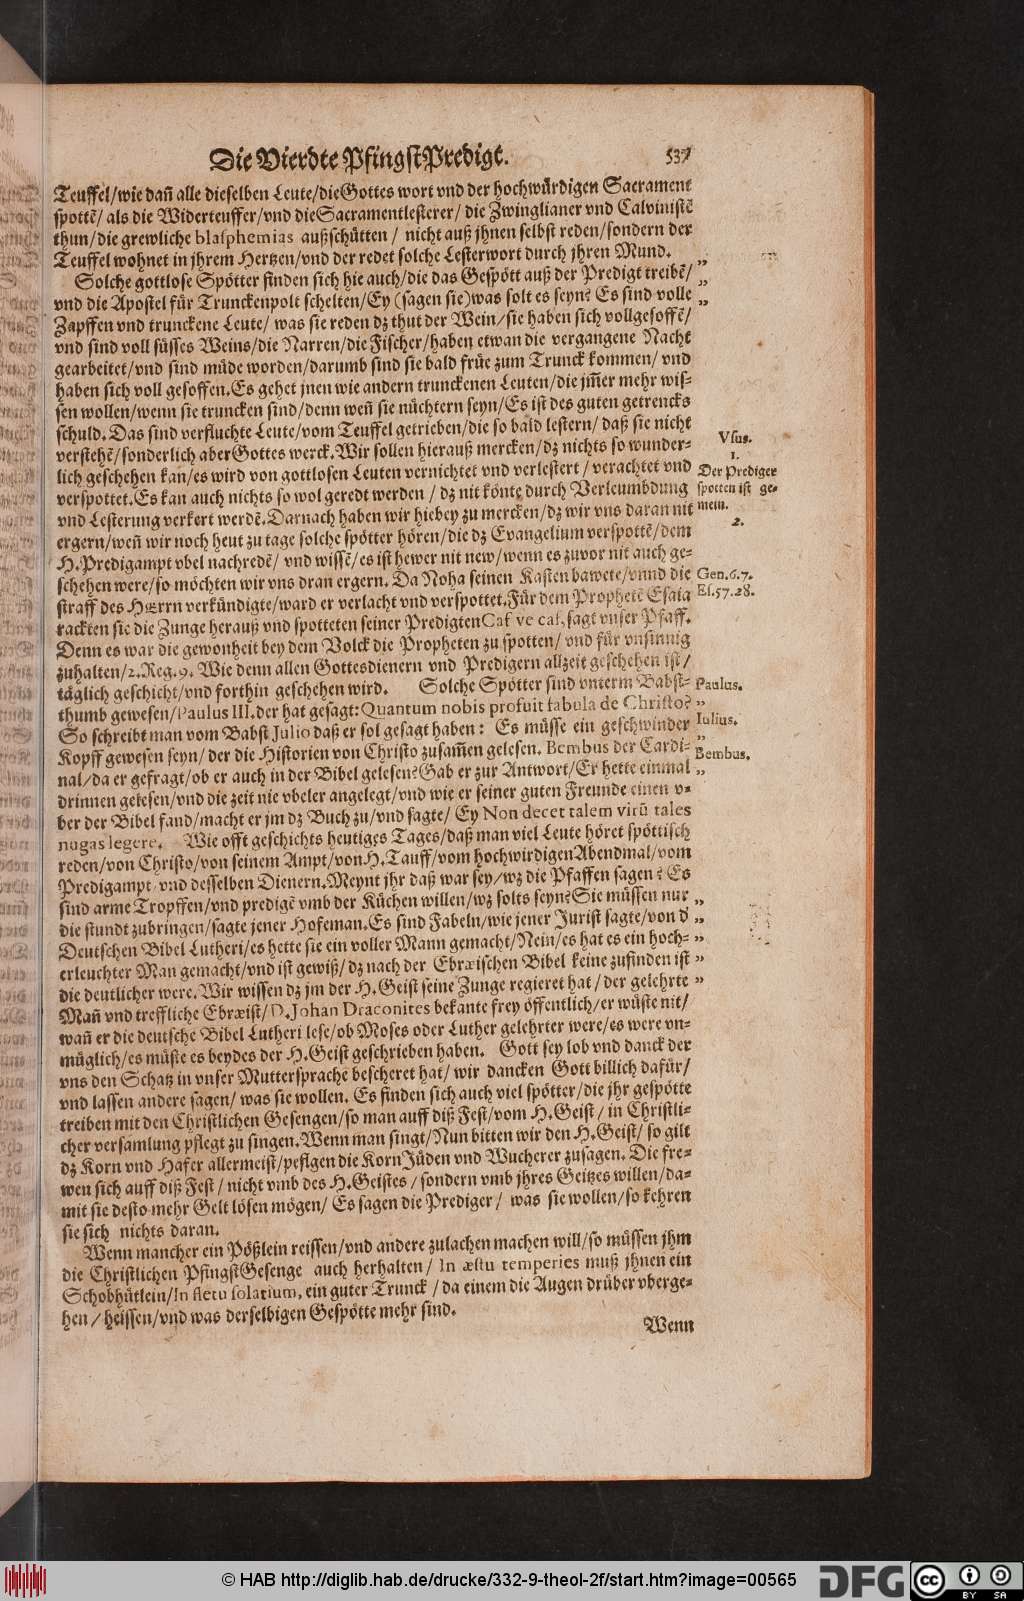 Die Vierdte PfingstPredigt. 537
Teuffel/wie dañ alle dieselben Leute/dieGottes wort vnd der hochwürdigen Sacrament
spottẽ/ als die Widerteuffer/vnd dieSacramentlesterer/ die Zwinglianer vnd Calvinistẽ
thun/die grewliche blasphemias außschütten / nicht auß jhnen selbst reden/sondern der
Teuffel wohnet in jhrem Hertzen/vnd der redet solche Lesterwort durch jhren Mund.
Solche gottlose Spötter finden sich hie auch/die das Gespött auß der Predigt treibẽ/ „
vnd die Apostel für Trunckenpolt schelten/Ey (sagen sie)was solt es seyn? Es sind volle „
Zapffen vnd trunckene Leute/ was sie reden dz thut der Wein/sie haben sich vollgesoffẽ/ „
vnd sind voll süsses Weins/die Narren/die Fischer/haben etwan die vergangene Nacht
gearbeitet/vnd sind müde worden/darumb sind sie bald früe zum Trunck kommen/ vnd
haben sich voll gesoffen.Es gehet jnen wie andern trunckenen Leuten/die jm̃er mehr wis-
sen wollen/wenn sie truncken sind/denn weñ sie nüchtern seyn/Es ist des guten getrencks
schuld. Das sind verfluchte Leute/vom Teuffel getrieben/die so bald lestern/ daß sie nicht
verstehẽ/sonderlich aberGottes werck.Wir sollen hierauß mercken/dz nichts so wunder-
lich geschehen kan/es wird von gottlosen Leuten vernichtet vnd verlestert / verachtet vnd
verspottet.Es kan auch nichts so wol geredt werden / dz nit könte durch Verleumbdung
vnd Lesterung verkert werdẽ.Darnach haben wir hiebey zu mercken/dz wir vns daran nit
ergern/weñ wir noch heut zu tage solche spötter hören/die dz Evangelium verspottẽ/dem
H.Predigampt vbel nachredẽ/ vnd wissẽ/es ist hewer nit new/wenn es zuvor nit auch ge-
schehen were/so möchten wir vns dran ergern. Da Noha seinen Kasten bawete/vnnd die
straff des HErrn verkündigte/ward er verlacht vnd verspottet.Für dem Prophetẽ Esaia
rackten sie die Zunge herauß vnd spotteten seiner PredigtenCaf ve caf, sagt vnser Pfaff.
Denn es war die gewonheit bey dem Volck die Propheten zu spotten/ vnd für vnsinnig
zuhalten/2.Reg.9. Wie denn allen Gottesdienern vnd Predigern allzeit geschehen ist/
täglich geschicht/vnd forthin geschehen wird. Solche Spötter sind vnterm Babst-
thumb gewesen/Paulus III.der hat gesagt:Quantum nobis profuit fabula de Christo?
So schreibt man vom Babst Julio daß er sol gesagt haben: Es müsse ein geschwinder
Kopff gewesen seyn/ der die Historien von Christo zusam̃en gelesen. Bembus der Cardi-
nal/da er gefragt/ob er auch in der Bibel gelesen?Gab er zur Antwort/Er hette einmal
drinnen gelesen/vnd die zeit nie vbeler angelegt/vnd wie er seiner guten Freunde einen v-
ber der Bibel fand/macht er jm dz Buch zu/vnd sagte/ Ey Non decet talem virũ tales
nugas legere. Wie offt geschichts heutiges Tages/daß man viel Leute höret spöttisch
reden/von Christo/von seinem Ampt/vonH.Tauff/vom hochwirdigenAbendmal/vom
Predigampt vnd desselben Dienern.Meynt jhr daß war sey/wz die Pfaffen sagen? Es
sind arme Tropffen/vnd predigẽ vmb der Küchen willen/wz solts seyn?Sie müssen nur „
die stundt zubringen/sagte jener Hofeman.Es sind Fabeln/wie jener Jurist sagte/von d „
Deutschen Bibel Lutheri/es hette sie ein voller Mann gemacht/Nein/es hat es ein hoch- „
erleuchter Man gemacht/vnd ist gewiß/ dz nach der Ebræischen Bibel keine zufinden ist „
die deutlicher were.Wir wissen dz jm der H.Geist seine Zunge regieret hat/der gelehrte „
Mañ vnd treffliche Ebræist/D.Johan Draconites bekante frey öffentlich/er wüste nit/
wañ er die deutsche Bibel Lutheri lese/ob Moses oder Luther gelehrter were/es were vn-
müglich/es müste es beydes der H.Geist geschrieben haben. Gott sey lob vnd danck der
vns den Schatz in vnser Muttersprache bescheret hat/ wir dancken Gott billich dafür/
vnd lassen andere sagen/ was sie wollen. Es finden sich auch viel spötter/die jhr gespötte
treiben mit den Christlichen Gesengen/so man auff diß Fest/vom H.Geist / in Christli-
cher versamlung pflegt zu singen.Wenn man singt/Nun bitten wir den H.Geist/ so gilt
dz Korn vnd Hafer allermeist/peflgen die KornJüden vnd Wucherer zusagen. Die fre-
wen sich auff diß Fest / nicht vmb des H.Geistes / sondern vmb jhres Geitzes willen/da-
mit sie desto mehr Gelt lösen mögen/ Es sagen die Prediger / was sie wollen/so kehren
sie sich nichts daran.
Wenn mancher ein Pößlein reissen/vnd andere zulachen machen will/so müssen jhm
die Christlichen PfingstGesenge auch herhalten/ In æstu temperies muß jhnen ein
Schobhütlein/In fletu solatium, ein guter Trunck / da einem die Augen drüber vberge-
hen / heissen/vnd was derselbigen Gespötte mehr sind.
Wenn
Vsus.
1.
Der Prediger
spotten ist ge-
mein.
2.
Gen.6.7.
Es.57.28.
Paulus.
„
Iulius.
„
Bembus.
„
© HAB http://diglib.hab.de/drucke/332-9-theol-2f/start.htm?image=00565
DFG
cc BY SA